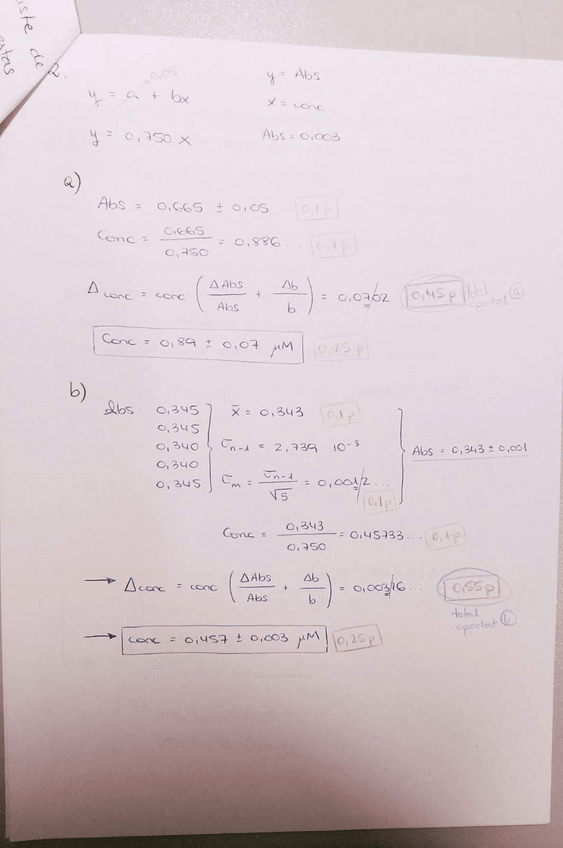 uste de
y = a + bx
y = Abs
x = conc
y = 0,750 x
Abs = 0,003
a)
Abs = 0,665 ± 0,05 0,1 p
Conc = 0,665 / 0,750 = 0,886... 0,1 p
Δconc = conc (ΔAbs / Abs + Δb / b) = 0,0702 0,45 p total apartat a
Conc = 0,89 ± 0,07 μM 0,25 p
b)
Abs 0,345
0,345
0,340
0,340
0,345
x̄ = 0,343 0,1 p
σn-1 = 2,739 · 10⁻³
σm = σn-1 / √5 = 0,001/2... 0,1 p
Abs = 0,343 ± 0,001
Conc = 0,343 / 0,750 = 0,45733... 0,1 p
→ Δconc = conc (ΔAbs / Abs + Δb / b) = 0,003/16... 0,55 p
total apartat b
→ conc = 0,457 ± 0,003 μM 0,25 p